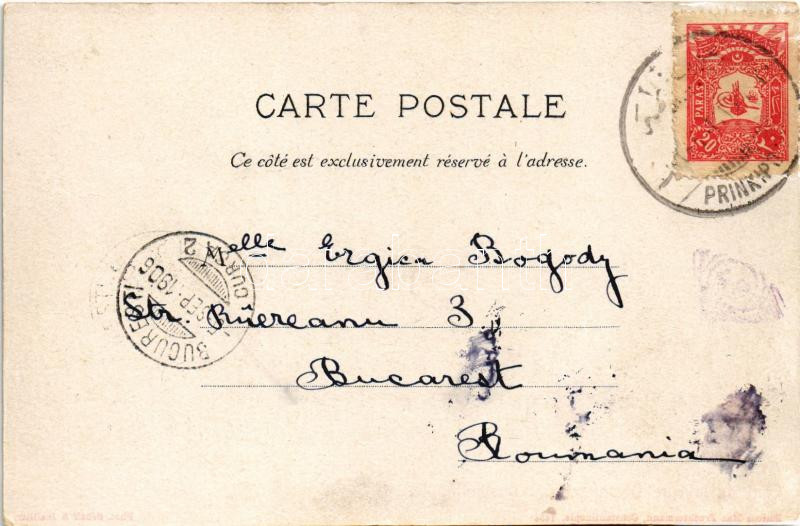 CARTE POSTALE
Ce côté est exclusivement réservé à l'adresse.
PARAS
20
٢٠
PRINKIPO
Melle Ergica Bogody
Str. Rûereanu 3
Bucarest
Roumania
BUCURESCI
SEP. 1906
2